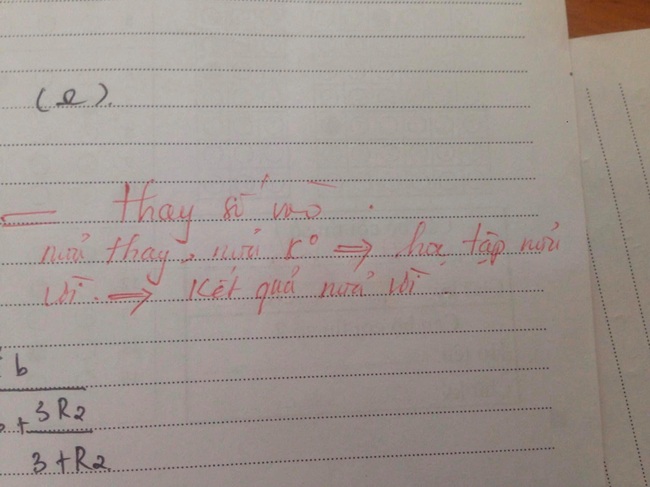 (Ω).
thay số vào.
nửa thay, nửa K° ⇒ học tập nửa
vời ⇒ Kết quả nửa vời
b
+ 3R2
3+R2